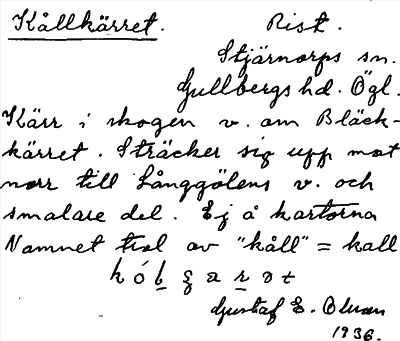 Kållkärret. Rist.
Stjärnorps sn.
Gullbergs hd. Ögl.
Kärr i skogen v. om Bläck-
kärret. Sträcker sig upp mot
norr till Långgölens v. och
smalare del. Ej å kartorna
Namnet trol av "kåll" = kall
Gustaf E. Olsson
1936.